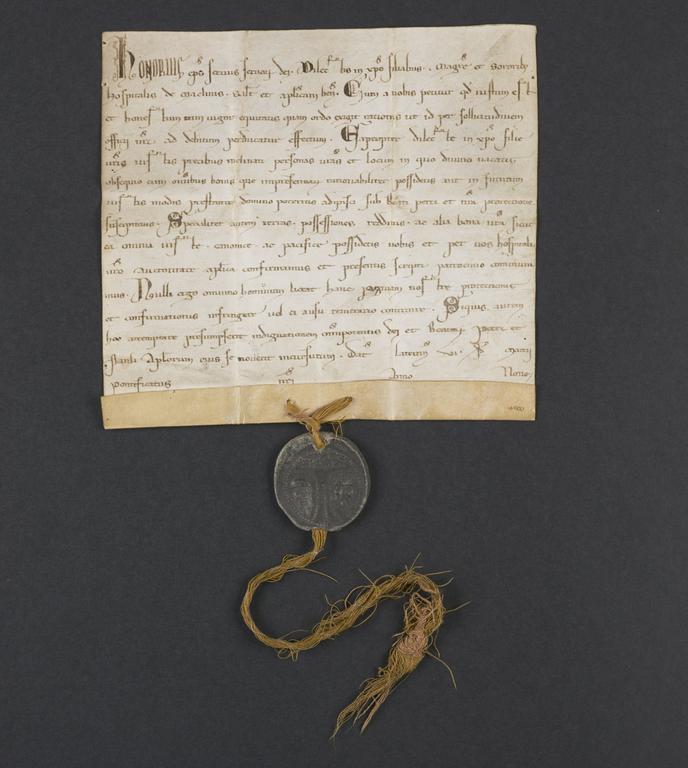 HONORIUS ep̄s seruus seruoꝝ dei. Dilectis in xp̄o filiabus. Magr̄e et Sororibꝫ
hospitalis de Maclinis. salt̄ et aplicam ben̄. Cum a nobis petitur qd̄ iustum est
et honestum tam uigor equitatis quam ordo exigit rationis ut id per sollicitudinem
officij nr̄i ad debitum perducatur effectum. Eapropter dilecte in xp̄o filie
ur̄is iustis precibus inclinati personas ur̄as et locum in quo diuino uacatis
obsequio cum omībus bonis que impresentiarum rationabiliter possidetis aut in futurum
iustis modis prestante domino poteritis adipisci sub beati petri et nr̄a protectione
suscipimus. Specialiter autem terras. possessiones. redditus. ac alia bona ur̄a sicut
ea omnia iuste. canonice. ac pacifice possidetis uobis et per uos hospitali
ur̄o auctoritate aplica confirmamus et presentis scripti patrocinio communi
mus. Nulli ergo omnino hominum liceat hanc paginam nostre protectionis
et confirmationis infringere uel ei ausu temerario contraire. Siquis autem
hoc attemptare presumpserit indignationem omnipotentis dei et Beatoꝝ petri et
Pauli Aplorum eius se nouerit incursurum. Dat̄ Lateran̄ vi. Marcij
pontificatus nr̄i Anno Nono